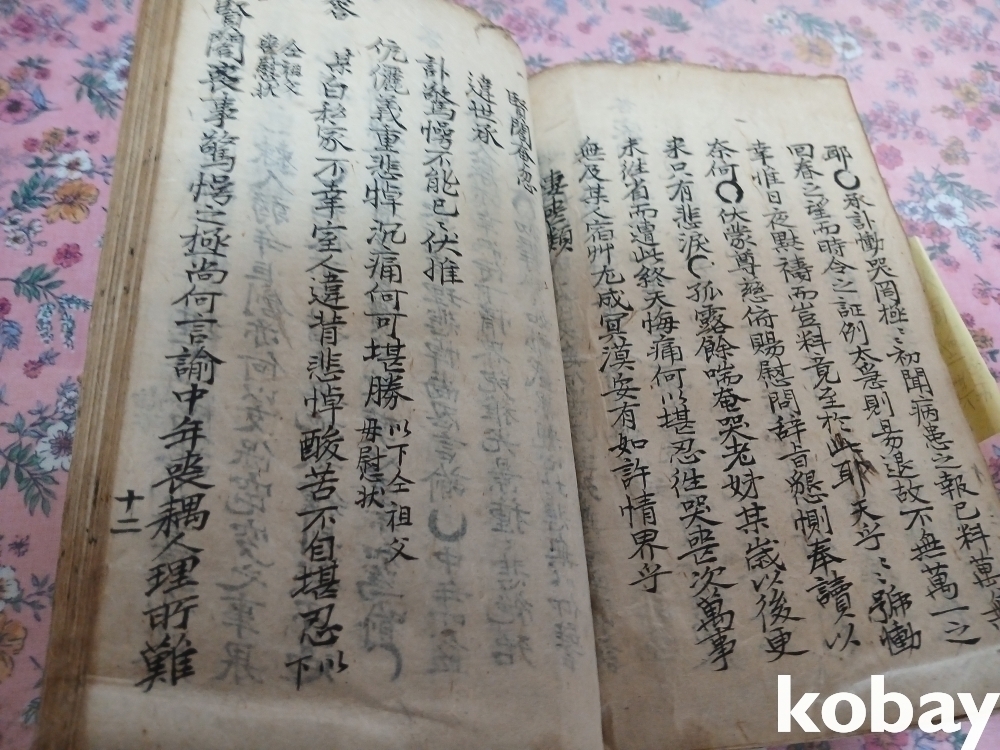 耶○承訃慟哭罔極〻初聞病患之報已料萬無
回春之望而時令之証例太急則易退故不無萬一之
幸惟日夜黙禱而豈料竟至於此耶天乎〻號慟
奈何○伏蒙尊慈俯賜慰問辞旨懇惻奉讀以
來只有悲淚○孤露餘喘奄哭老姊某歲以後更
未徃省而遭此終天悔痛何以堪忍徃哭喪次萬事
無及某人宿艸尤成冥漠安有如許情界乎
妻喪類
賢閤奄忽
違世承
訃驚愕不能已〻伏惟
伉儷義重悲悼沉痛何可堪勝
以下仝祖父
母慰狀
某白私家不幸室人違昔悲悼酸苦不自堪忍
以下
仝祖父
母慰狀
答
賢閤喪事驚愕之極尚何言諭中年喪耦人理所難
十二
kobay